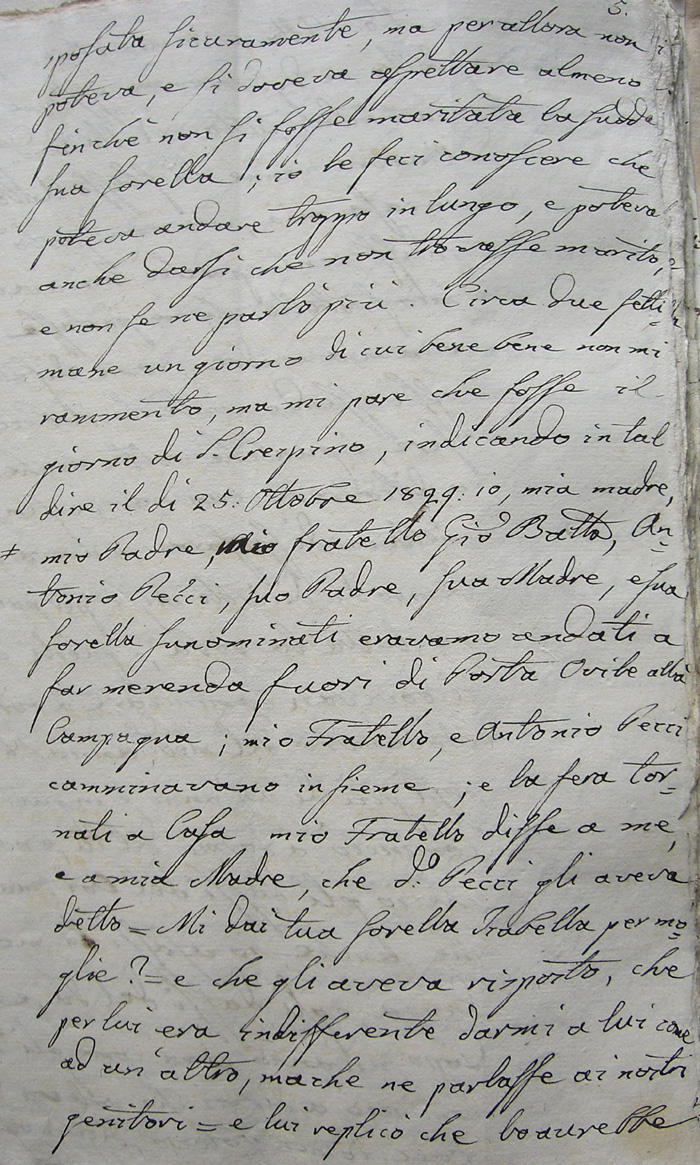 5.
sposata sicuramente, ma per allora non
poteva, e si doveva aspettare almeno
finchè non si fosse maritata la sudda
sua sorella; io le feci conoscere che
poteva andare troppo in lungo, e poteva
anche darsi che non trovasse marito,
e non se ne parlò più. Circa due setti=
mane un giorno di cui bene bene non mi
rammento, ma mi pare che fosse il
giorno di S. Crespino, indicando in tal
dire il dì 25. Ottobre 1899. io, mia madre,
mio Padre, mio fratello Gio Batta, An=
tonio Pecci, suo Padre, sua Madre, e sua
sorella sunominati eravamo andati a
far merenda fuori di Porta Ovile alla
Campagna; mio Fratello, e Antonio Pecci
camminavano insieme; e la sera tor=
nati a Casa mio Fratello disse a me,
e a mia Madre, che do. Pecci gli aveva
detto = Mi dai tua sorella Isabella per mo=
glie? = e che gli aveva risposto, che
per lui era indifferente darmi a lui come
ad un'altro, ma che ne parlasse ai nostri
genitori = e lui replicò che lo avrebbe